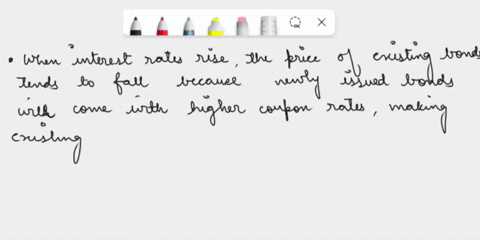 • When interest rates rise, the price of existing bonds
tends to fall because newly issued bonds
will come with higher coupon rates, making
existing